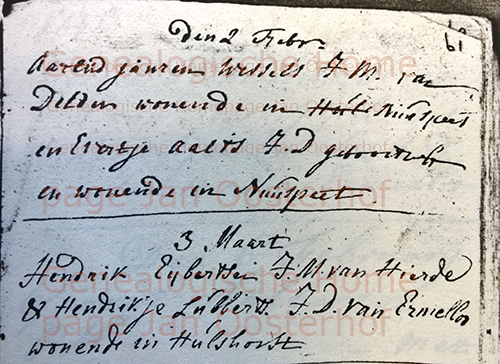 den 2 Febr.
61
Aarend Jansen Wessels J M van
Delden wonende in Hul Nunspeet
en Evertje Aalts J D geboortich
en wonende in Nunspeet
3 Maart
Hendrik Eijbertsen J.M. van Hierde
& Hendrikje Lubberts J.D. van Ermello
wonende in Hulshorst
Genealogische Home
page Jan Oosterhof
Genealogische Home
page Jan Oosterhof